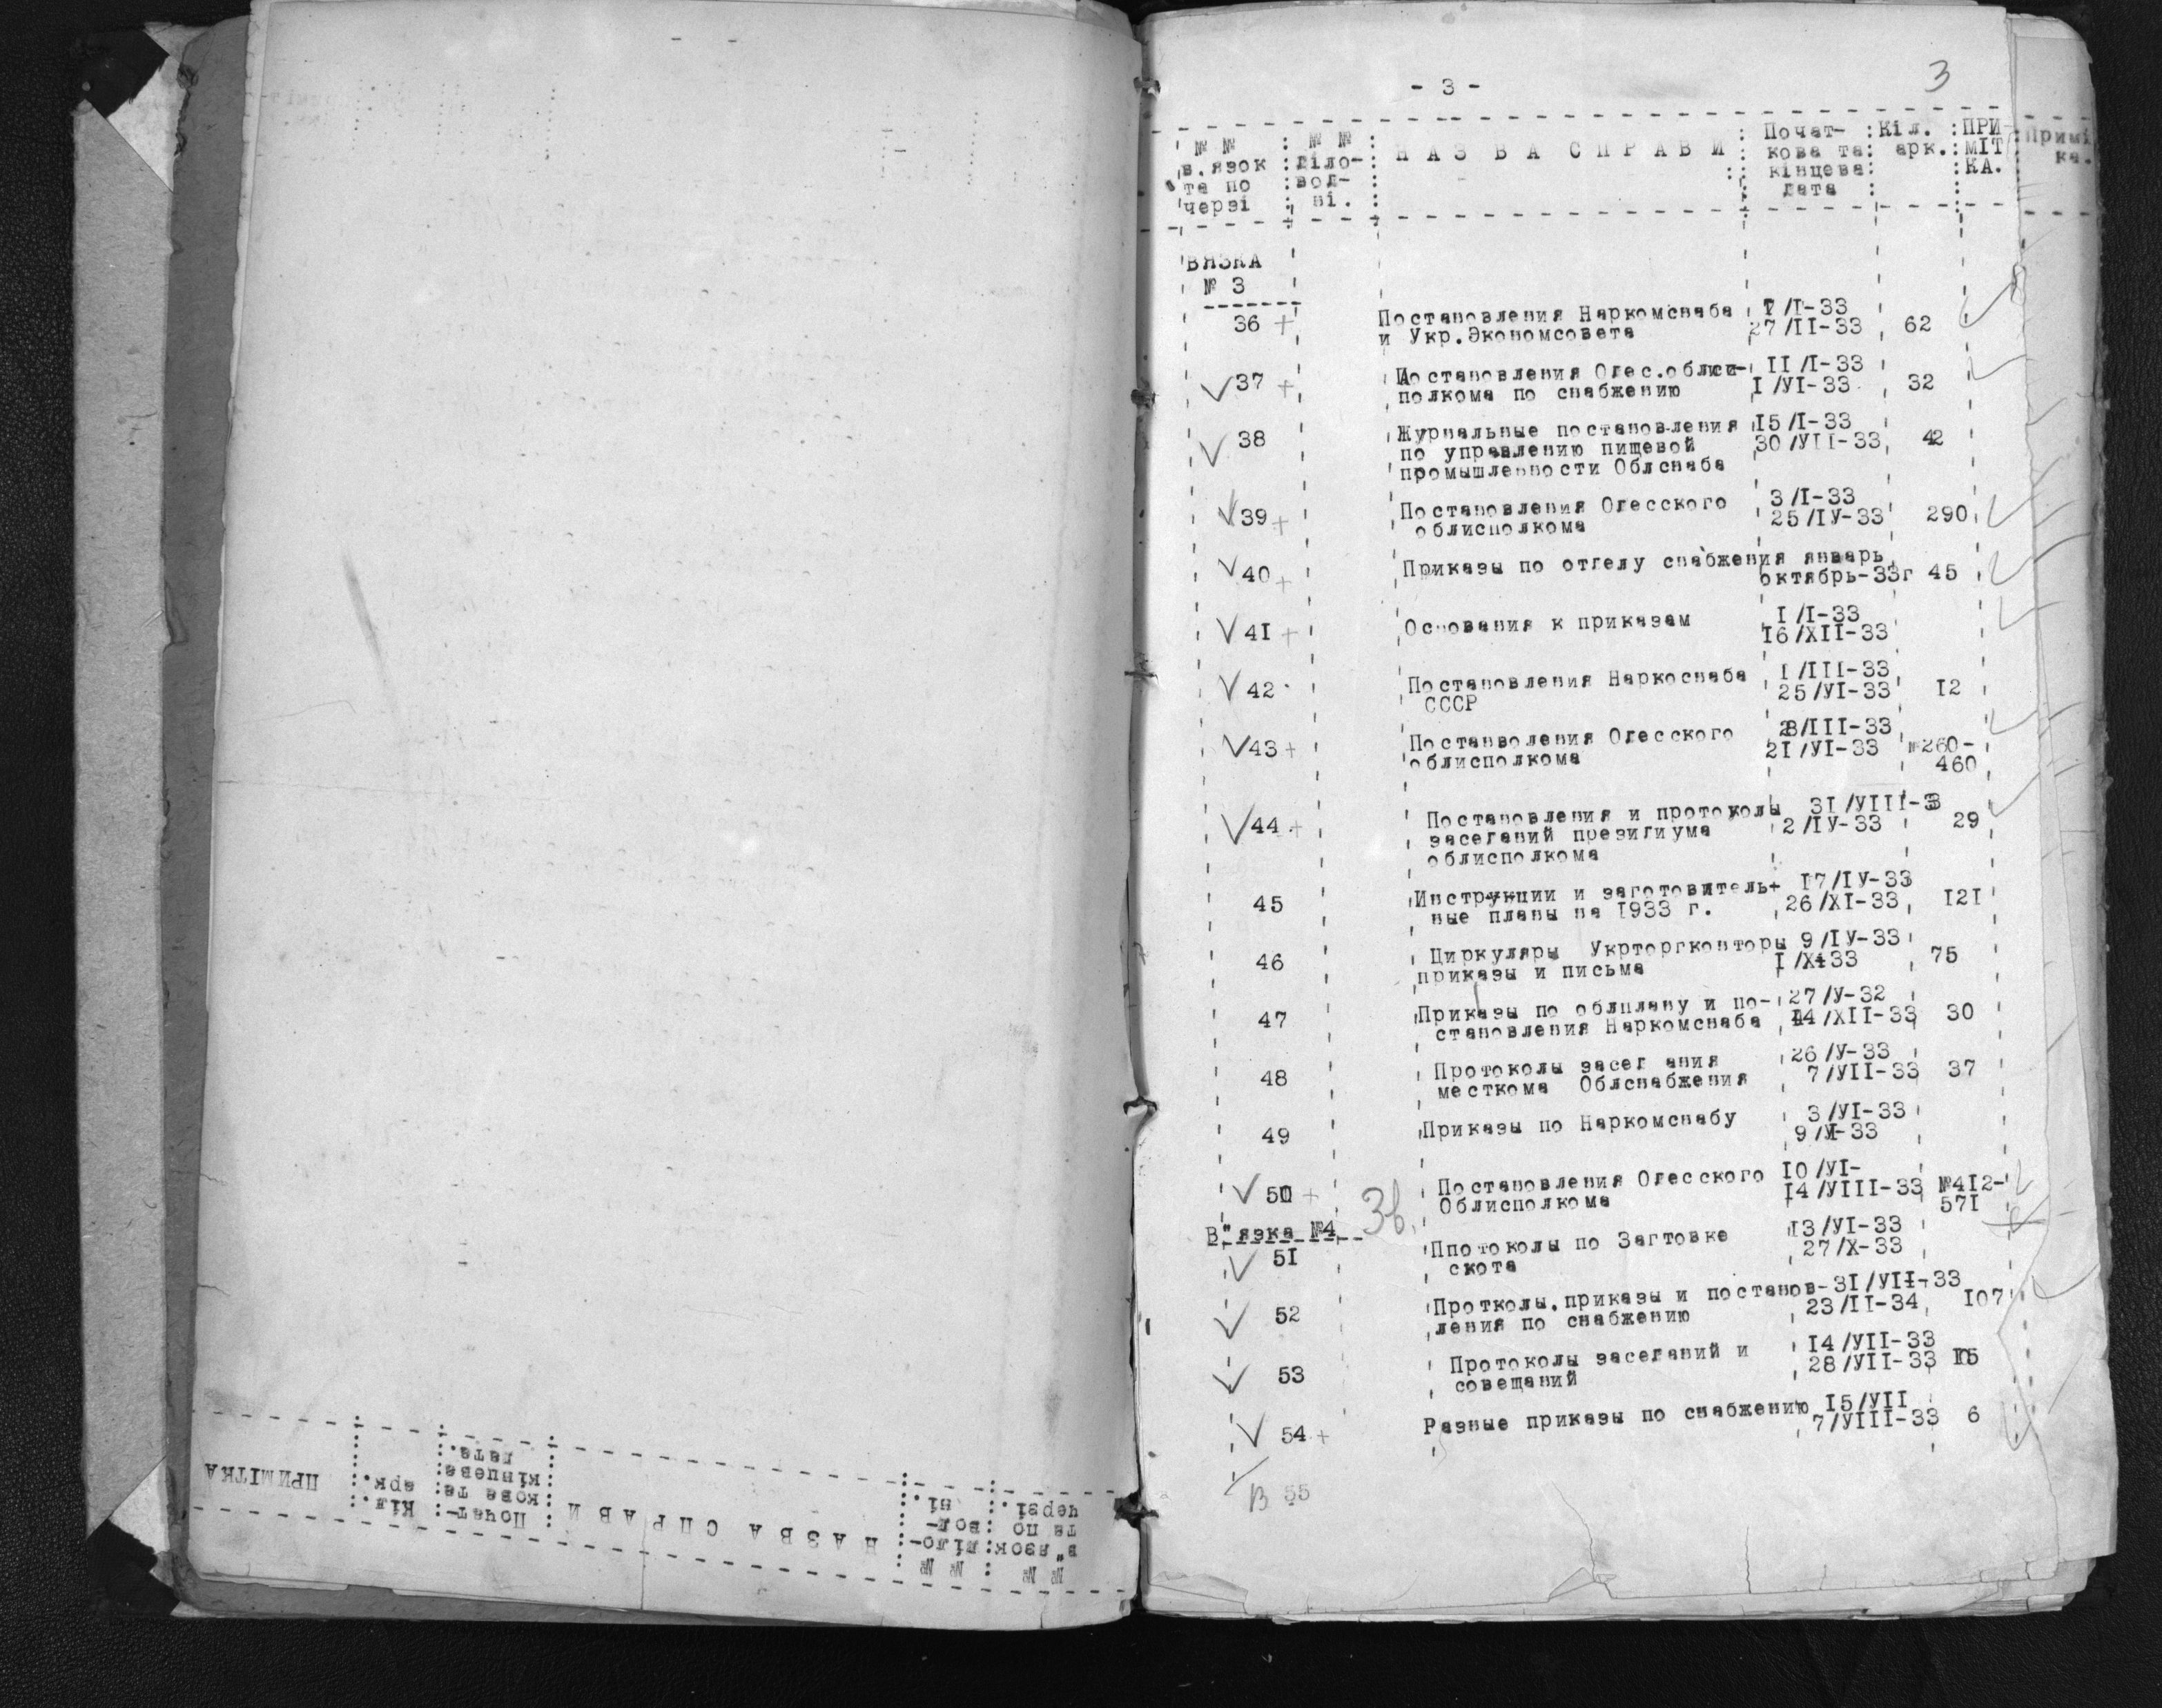 - 3 -
3
№ № в.язок та по черзі : № № діло-вод-ні. : Н А З В А С П Р А В И : Почат-кова та кінцева дата : Кіл. арк. : ПРИМІТКА.
Примі
ка.
ВЯЗКА
№ 3
36 + Постановления Наркомснаба 7/I-33
и Укр.Экономсовета 27/II-33 62
37 + Постановления Одес.облис- II/I-33
полкома по снабжению I/УI-33 32
38 Журнальные постановления I5/I-33
по управлению пищевой 30/УII-33 42
промышленности Облснаба
39 + Постановления Одесского 3/I-33
облисполкома 25/IУ-33 290
40 + Приказы по отделу снабжения январь
октябрь-33г 45
4I + Основания к приказам I/I-33
I6/XII-33
42 Постановления Наркоснаба I/III-33
СССР 25/УI-33 I2
43 + Постанволения Одесского 28/III-33
облисполкома 2I/УI-33 №260-
460
44 + Постановления и протоколы 3I/УIII-3
заседаний президиума 2/IУ-33 29
облисполкома
45 Инструкции и заготовитель- I7/IУ-33
ные планы на I933 г. 26/XI-33 I2I
46 Циркуляры Укрторгконторы 9/IУ-33
приказы и письма I/XI-33 75
47 Приказы по облплану и по- 27/У-32
становления Наркомснаба I4/XII-33 30
48 Протоколы засед ания 26/У-33
месткома Облснабжения 7/УII-33 37
49 Приказы по Наркомснабу 3/УI-33
9/XI-33
50 + Постановления Одесского I0/УI-
Облисполкома I4/УIII-33 №4I2-
57I
В"язка №4 Зв.
5I Ппотоколы по Загтовке I3/УI-33
скота 27/X-33
52 Протколы.приказы и постанов- 3I/УII-33
ления по снабжению 23/II-34 I07
53 Протоколы заседаний и I4/УII-33
совещаний 28/УII-33 I5
54 + Разные приказы по снабжению I5/УII
7/УIII-33 6
В 55
№ № в"язок та по черзі. : № № діло-вод-ні. : Н А З В А С П Р А В И : Почат-кова та кінцева дата. : Кіл. арк. : ПРИМІТКА